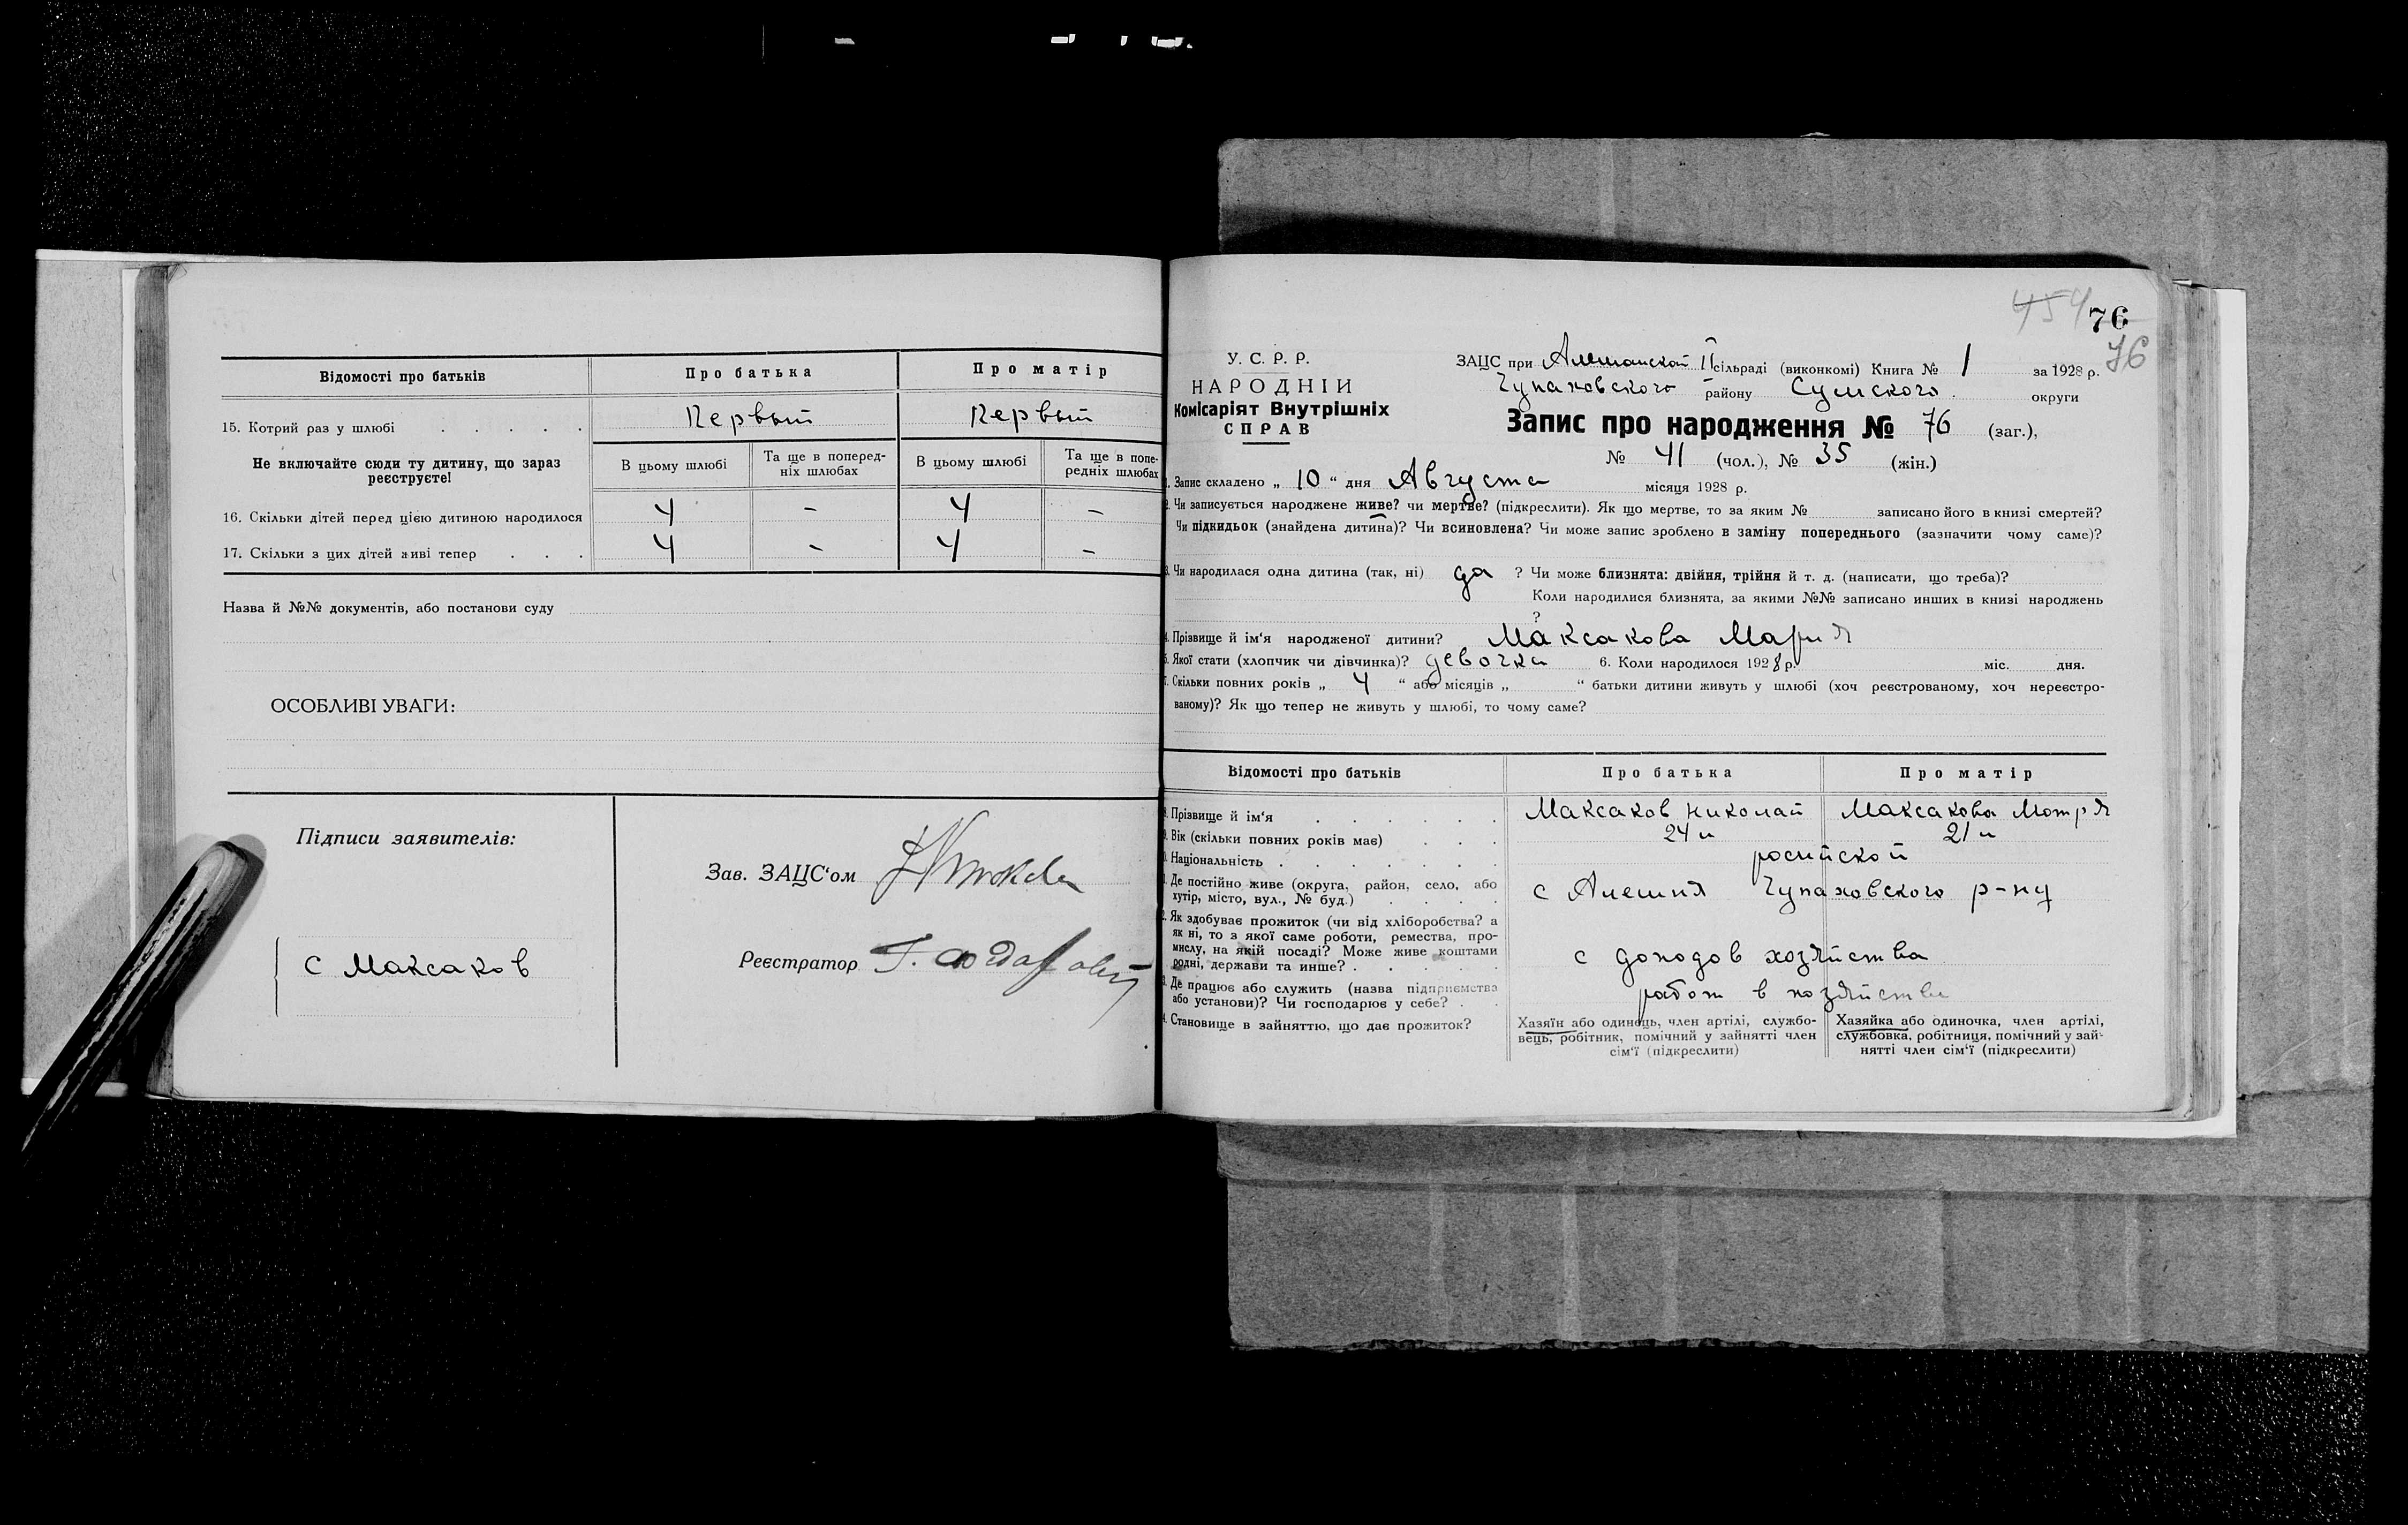 Відомості про батьків
Про батька
Про матір
15. Котрий раз у шлюбі
Первый
Первый
Не включайте сюди ту дитину, що зараз реєструєте!
В цьому шлюбі
Та ще в поперед-
ніх шлюбах
В цьому шлюбі
Та ще в попе-
редніх шлюбах
16. Скільки дітей перед цією дитиною народилося 4 - 4 -
17. Скільки з цих дітей живі тепер 4 - 4 -
Назва й №№ документів, або постанови суду
ОСОБЛИВІ УВАГИ:
Підписи заявителів:
С Максаков
Зав. ЗАЦС'ом
Реєстратор
454
76
76
У. С. Р. Р.
НАРОДНІЙ
Комісаріят Внутрішніх
СПРАВ
ЗАЦС при Алешанской II сільраді (виконкомі) Книга № 1 за 1928 р.
Чупаховского району Сумского округи
Запис про народження № 76 (заг.),
№ 41 (чол.), № 35 (жін.)
1. Запис складено „ 10 “ дня Августа місяця 1928 р.
2. Чи записується народжене живе? чи мертве? (підкреслити). Як що мертве, то за яким № записано його в книзі смертей?
Чи підкидьок (знайдена дитина)? Чи всиновлена? Чи може запис зроблено в заміну попереднього (зазначити чому саме)?
3. Чи народилася одна дитина (так, ні) да ? Чи може близнята: двійня, трійня й т. д. (написати, що треба)?
Коли народилися близнята, за якими №№ записано инших в книзі народжень
?
4. Прізвище й ім'я народженої дитини? Максакова Мария
5. Якої стати (хлопчик чи дівчинка)? девочка 6. Коли народилося 1928 р. міс. дня.
7. Скільки повних років „ 4 “ або місяців „ “ батьки дитини живуть у шлюбі (хоч реєстрованому, хоч нереєстро-
ваному)? Як що тепер не живуть у шлюбі, то чому саме?
Відомості про батьків
Про батька
Про матір
8. Прізвище й ім'я
Максаков Николай
Максакова Мотря
9. Вік (скільки повних років має)
24 л
21 л
10. Національність
росийской
11. Де постійно живе (округа, район, село, або
хутір, місто, вул., № буд.)
с Алешня Чупаховского р-ну
12. Як здобуває прожиток (чи від хліборобства? а
як ні, то з якої саме роботи, ремества, про-
мислу, на якій посаді? Може живе коштами
родні, держави та инше?
с доходов хозяйства
13. Де працює або служить (назва підприємства
або установи)? Чи господарює у себе?
работ в хозяйстве
14. Становище в зайняттю, що дає прожиток?
Хазяїн або одинець, член артілі, службо-
вець, робітник, помічний у зайнятті член
сім'ї (підкреслити)
Хазяйка або одиночка, член артілі,
службовка, робітниця, помічний у зай-
нятті член сім'ї (підкреслити)